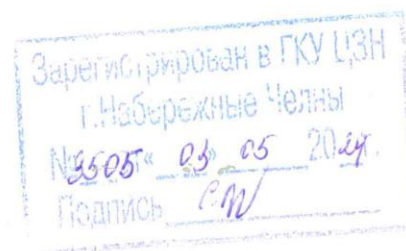 Зарегистрирован в ГКУ ЦЗН
г.Набережные Челны
№ 3505 « 03 » 05 20 24 г.
Подпись